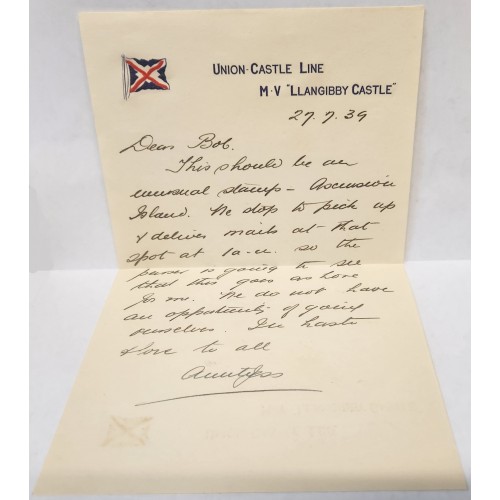 UNION-CASTLE LINE
M·V "LLANGIBBY CASTLE"
27.7.39
Dear Bob.
This should be an
unusual stamp – Ascension
Island. We stop to pick up
& deliver mails at that
spot at 1 a.m. so the
purser is going to see
that this goes
for me. We do not have
an opportunity of going
ourselves. In haste
& love to all
Aunt Jess